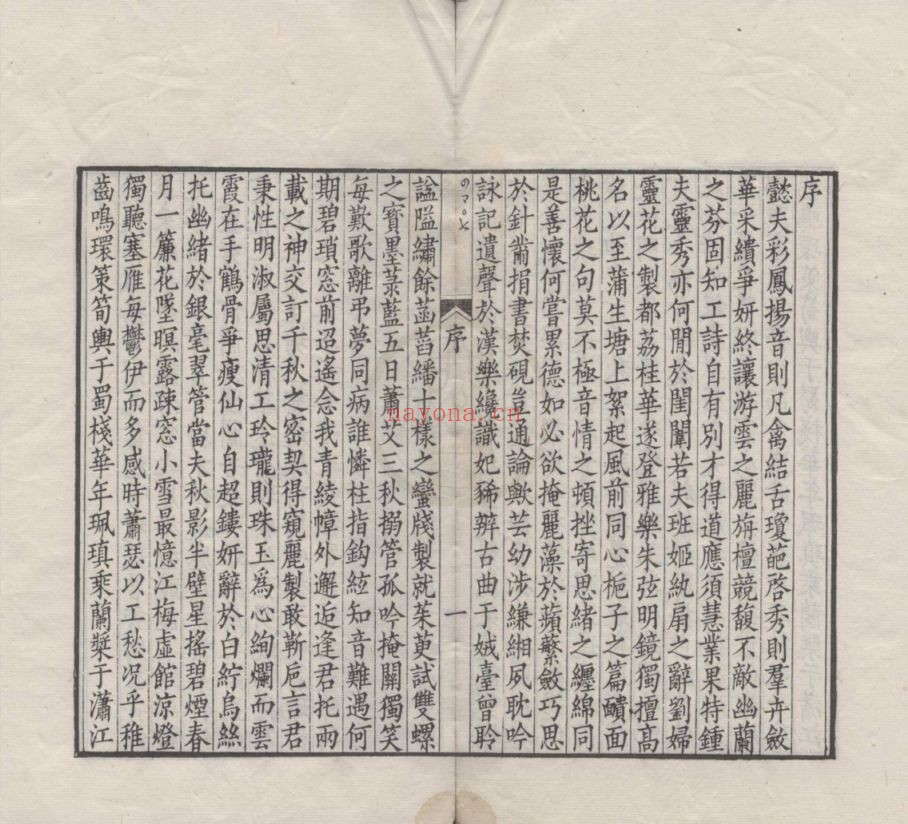 序
懿夫彩鳳揚音則凡禽結舌瓊葩啓秀則羣卉斂
華采繢爭妍終讓游雲之麗旃檀競馥不敵幽蘭
之芬固知工詩自有別才得道應須慧業果特鍾
夫靈秀亦何閒於閨闈若夫班姬紈扇之辭劉婦
靈花之製都荔桂華遂登雅樂朱弦明鏡獨擅高
名以至蒲生塘上絮起風前同心梔子之篇靧面
桃花之句莫不極音情之頓挫寄思緒之纏綿同
是善懷何嘗累德如必欲掩麗藻於蘋蘩斂巧思
於針黹捐書焚硯豈通論歟芸幼涉縑緗夙耽吟
詠記遺聲於漢樂纔識妃豨辨古曲于娀臺曾聆
序
一
謚隘繡餘菡萏繙十樣之蠻牋製就茱萸試雙螺
之寶墨菉藍五日蕭艾三秋搦管孤吟掩關獨笑
每歎歌離弔夢同病誰憐柱指鈎絃知音難遇何
期碧瑣窓前迢遙念我青綾幛外邂逅逢君托兩
載之神交訂千秋之密契得窺麗製敢靳巵言君
秉性明淑屬思清工玲瓏則珠玉爲心絢爛而雲
霞在手鶴骨爭瘦仙心自超鏤妍辭於白紵烏絲
托幽緒於銀毫翠管當夫秋影半壁星搖碧煙春
月一簾花墜暝露疎窓小雪最憶江梅虛館涼燈
獨聽塞雁每鬱伊而多感時蕭瑟以工愁况乎稚
齒鳴環策筍輿于蜀棧華年珮瑱乘蘭槳于瀟江
nayona.cn